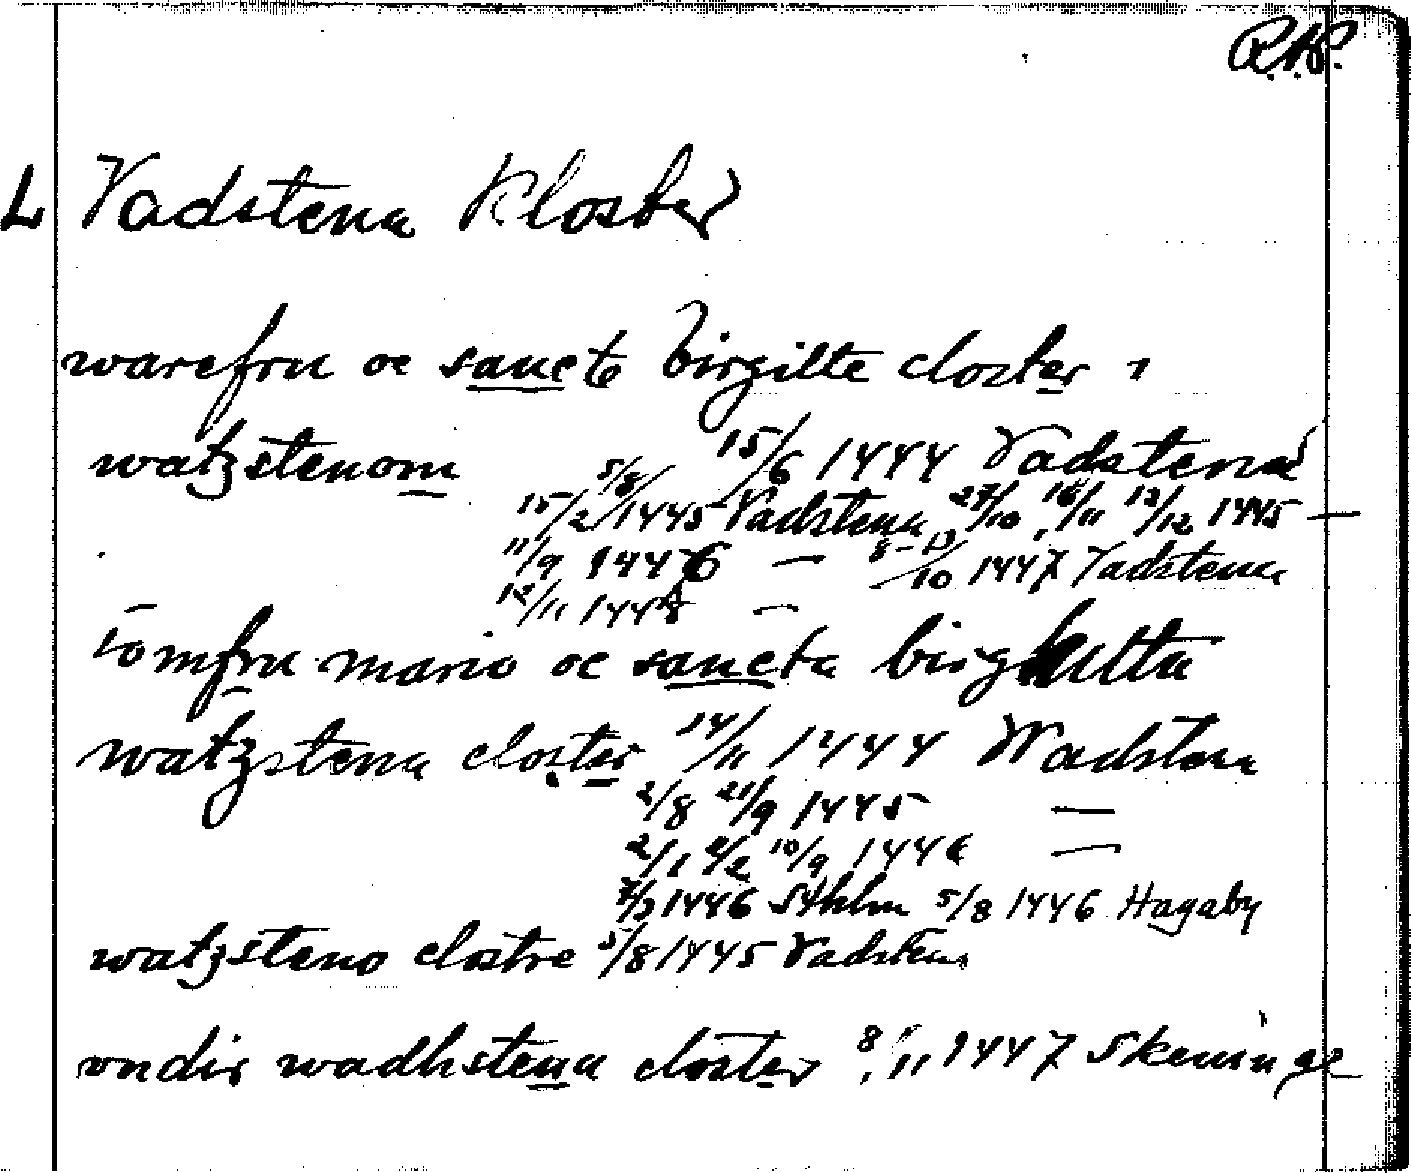 R.A.P.
L Vadstena Kloster
warefru oc sancte birgitte closter i
watzstenom 15/6 1444 Vadstena
5/8
15/2 1445 Vadstena 27/10, 16/11 13/12 1445 —
11/9 1446 — 8-13/10 1447 Vadstena
12/11 1448 —
iomfru mario oc sancta birghitta
watzstena closter 14/11 1444 Wadstena
2/8 21/9 1445 —
2/1 2/2 10/9 1446 —
1446 Sthlm 5/8 1446 Hagaby
watzsteno clostre 5/8 1445 Vadstena
vndir wadhstena closter 8/11 1447 Skeninge